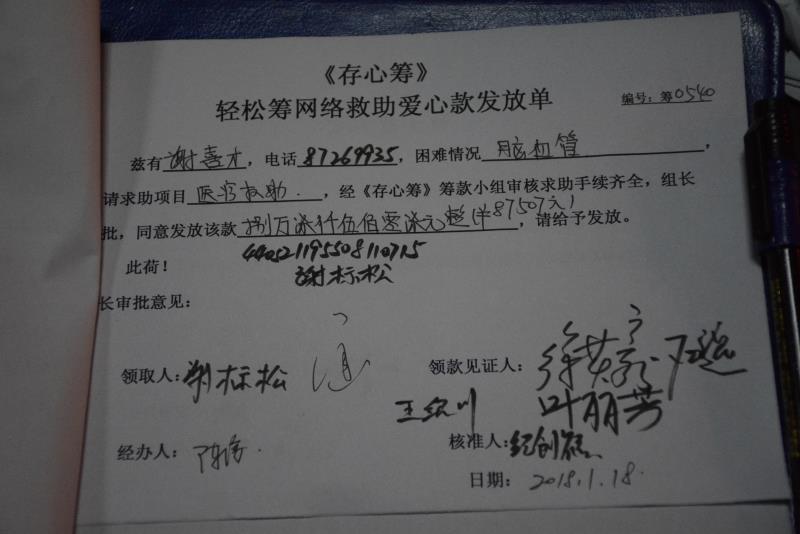 《存心筹》
轻松筹网络救助爱心款发放单
编号：筹0540
兹有谢喜才，电话87269935，困难情况脑血管，
请求助项目医疗救助.，经《存心筹》筹款小组审核求助手续齐全，组长
批，同意发放该款捌万柒仟伍佰零柒元整(¥87507元)，请给予发放。
此荷！
440521195508110715
谢标松
长审批意见：
领取人：谢标松
领款见证人：
王纯川
叶丽芳
经办人：
核准人：
日期：2018.1.18.